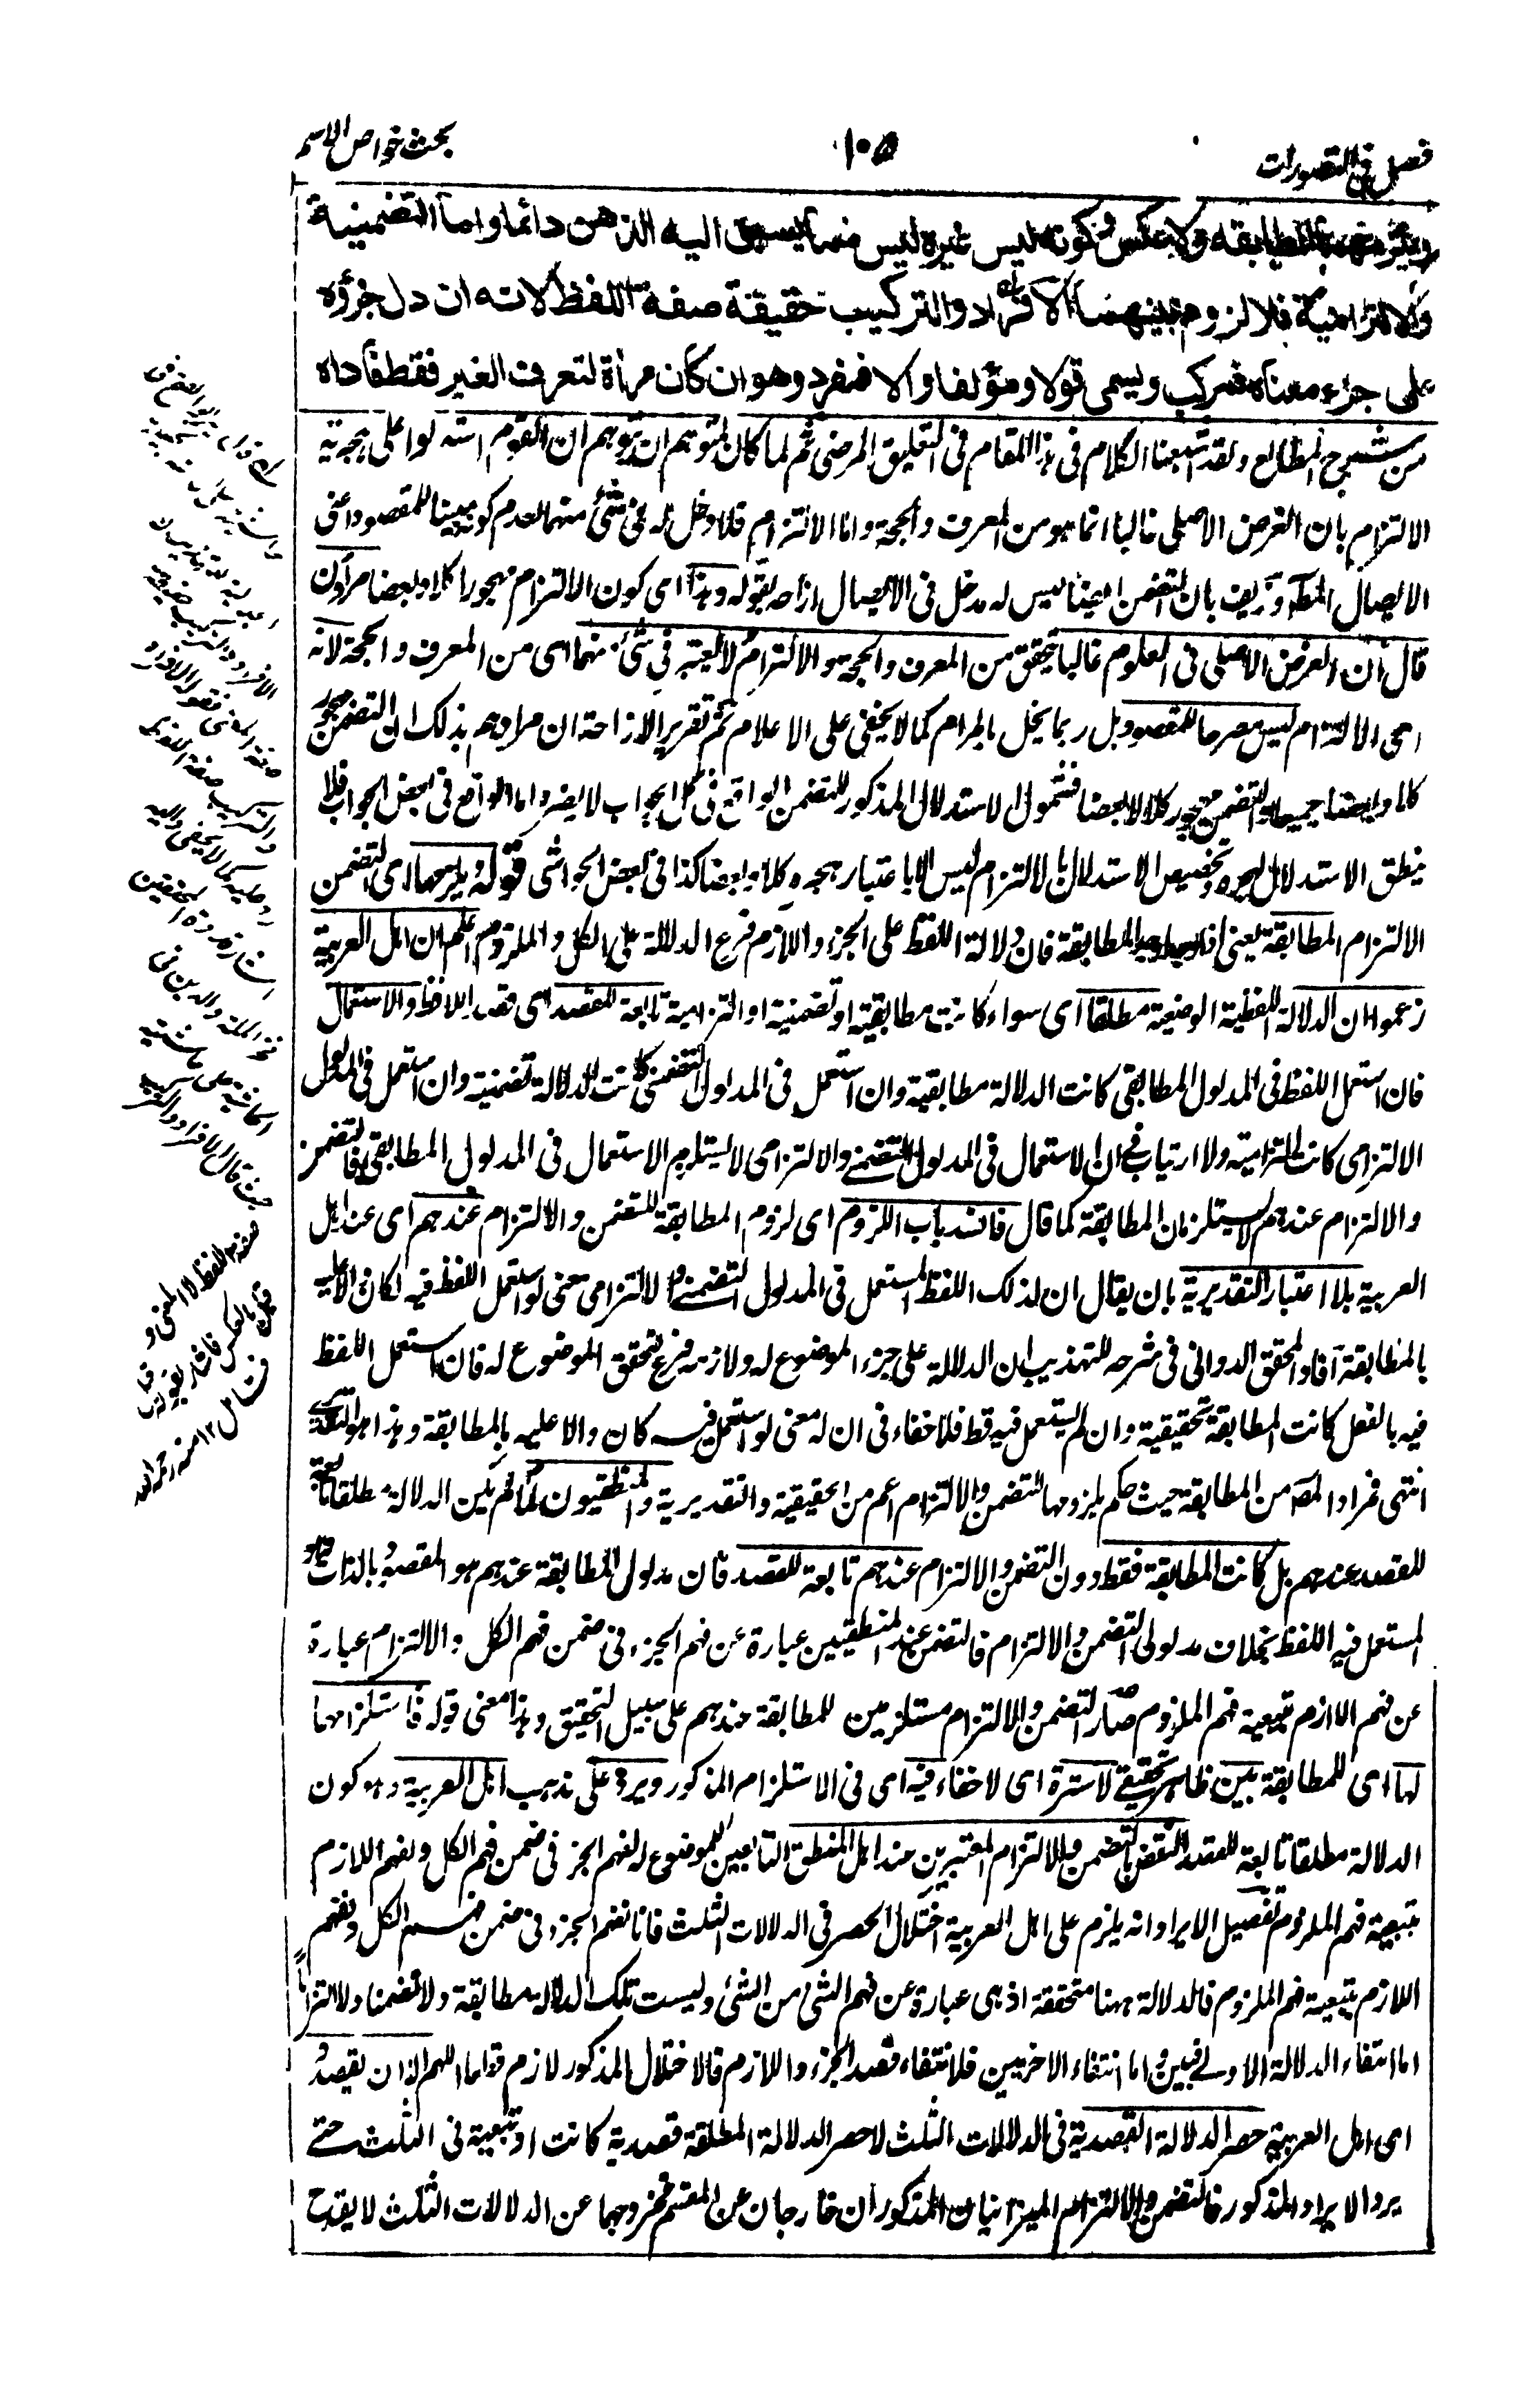 فصل فی التصورات
١٠٥
بحث خواص الاسم
بالمطابقه ولا عکس وکونه لیس غیره لیس مما یسبق الیه الذهن دائما واما التضمنیة
والالتزامیة فلا لزوم بینهما الافراد والترکیب حقیقة صفة اللفظ لانه ان دل جزؤه
علی جزء معناه فمرکب ویسمی قولا ومؤلفا والا فمفرد وهو ان کان مرأة لتعرف الغیر فقط فاداه
من شرح المطالع ولقد اشبعنا الکلام فی هذا المقام فی التعلیق المرضی ثم لما کان لمتوهم ان یتوهم ان القوم استدلوا علی مهجوریة
الالتزام بان الغرض الاصلی غالبا انما هو من المعرف والحجة واما الالتزام فلا دخل له فی شئ منهما لعدم کونه مبینا للمقصود اعنی
الایصال المط وتزییف بان التضمن ایضا لیس له مدخل فی الایصال ازاحه بقوله وهذا ای کون الالتزام مهجورا کلا وبعضا مراد من
قال ان الغرض الاصلی فی العلوم غالبا تحقق من المعرف والحجة والالتزام لا یعتبر فی شئ منهما ای من المعرف والحجة لانه
ای الالتزام لیس مصرحا للمقصود بل ربما یخل بالمرام کما لا یخفی علی الاعلام ثم تقریر الازاحة ان مرادهم بذلک ان التضمن مهجور
کلا وایضا جمیعا والتضمن مهجور کلا لا بعضا فشمول الاستدلال المذکور للتضمن الواقع فی کل الجواب لا یضر واما الواقع فی بعض الجواب فلا
ینطق الاستدلال لهجره وتخصیص الاستدلال بالالتزام لیس الا باعتبار هجره کلا وبعضا کذا فی بعض الحواشی قوله ویلزمهما ای التضمن
الالتزام المطابقة یعنی المطابقة فان دلالة اللفظ علی الجزء واللازم فرع الدلالة علی الکل والملزوم ثم اعلم ان اهل العربیة
زعموا ان الدلالة اللفظیة الوضعیة مطلقا ای سواء کانت مطابقیة او تضمنیة او التزامیة تابعة للقصد ای قصد اللافظ والاستعمال
فان استعمل اللفظ فی المدلول المطابقی کانت الدلالة مطابقیة وان استعمل فی المدلول التضمنی کانت الدلالة تضمنیة وان استعمل فی المدلول
الالتزامی کانت التزامیة ولا ارتیاب فی ان الاستعمال فی المدلول التضمنے والالتزامی لا یستلزم الاستعمال فی المدلول المطابقی فالتضمن
والالتزام عندهم لا یستلزمان المطابقة کما قال فانسد باب اللزوم ای لزوم المطابقة للتضمن والالتزام عندهم ای عند اهل
العربیة بلا اعتبار التقدیریة بان یقال ان لذلک اللفظ المستعمل فی المدلول التضمنے والالتزامی معنی لو استعمل اللفظ فیه لکان دالا علیه
بالمطابقة افاد المحقق الدوانی فی شرحه للتهذیب ان الدلالة علی جزء الموضوع له ولازمه فرع لتحقق الموضوع له فان استعمل اللفظ
فیه بالفعل کانت المطابقة تحقیقیة وان لم یستعمل فیه قط فلا خفاء فی ان له معنی لو استعمل فیه کان دالا علیه بالمطابقة وهذا هو التقدیری
انتهی فمراد المص من المطابقة حیث حکم بلزومها التضمن والالتزام اعم من الحقیقیة والتقدیریة والمنطقیون لما لم یکن الدلالة مطلقا تابعة
للقصد عندهم بل کانت المطابقة فقط دون التضمن والالتزام عندهم تابعة للقصد فان مدلول المطابقة عندهم هو المقصود بالذات
المستعمل فیه اللفظ بخلاف مدلولی التضمن والالتزام فالتضمن عند المنطقیین عبارة عن فهم الجزء فی ضمن فهم الکل والالتزام عبارة
عن فهم اللازم بتبعیة فهم الملزوم صار التضمن والالتزام مستلزمین للمطابقة عندهم علی سبیل التحقیق وهذا معنی قوله فاستلزامهما
لها ای للمطابقة بین ظاهر تحقیقے لا سترة ای لا خفاء فیه ای فی الاستلزام المذکور ویرد علی مذهب اهل العربیة وهو کون
الدلالة مطلقا تابعة للقصد النقض بالتضمن والالتزام المعتبرین عند اهل المنطق التابعین للموضوع له لفهم الجزء فی ضمن فهم الکل ولفهم اللازم
بتبعیة فهم الملزوم تفصیل الایراد انه یلزم علی اهل العربیة اختلال الحصر فی الدلالات الثلث فانا نفهم الجزء فی ضمن فهم الکل ونفهم
اللازم بتبعیة فهم الملزوم فالدلالة ههنا متحققة اذ هی عبارة عن فهم الشئ من الشئ ولیست تلک الدلالة مطابقة ولا تضمنا ولا التزاما
اما انتفاء الدلالة الاولے فبین واما انتفاء الاخریین فلانتفاء قصد الجزء واللازم فالاختلال المذکور لازم قطعا اللهم الا ان یقصدوا
ای اهل العربیة حصر الدلالة القصدیة فی الدلالات الثلث لا حصر الدلالة المطلقة قصدیة کانت او تبعیة فی الثلث حتے
یرد الایراد المذکور فالتضمن والالتزام المیزانیان المذکوران خارجان عن المقسم فخروجهما عن الدلالات الثلث لا یقدح
صفة اللفظ لا المعنی و
قیل بالعکس فاشار بقوله
١٢ منه رحمه الله